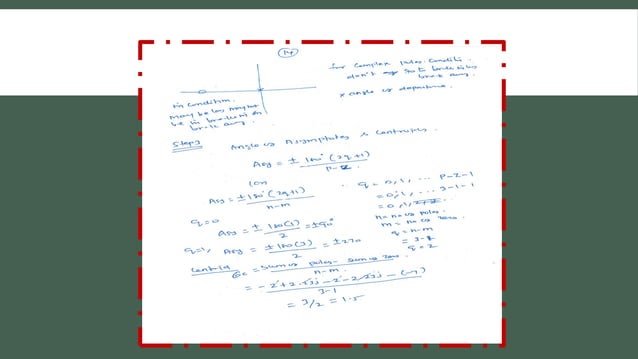 14
for Complex Poles. Conditi.
don't
break away.
* angle of departure.
in condition.
may be (or) may not
be in break in or
break away.
Step3 Angle of Asymptotes & Centroids.
Asy = ± 180° (2q+1)
P-Z
(or)
Asy = ±180°(2q+1)
n-m
q = 0, 1, ... P-Z-1
= 0, 1, ... 3-1-1
= 0, 1,
n = no of poles.
m = no of zeros.
q = n-m
= 3-1
q = 2
q=0
Asy = ± 180(1) = ±90°
2
q=1, Asy = ± 180(3) = ±270
2
Centroid = Sum of poles - Sum of zeros.
n-m.
= -2+2.5j-2-2.5j - (-1)
3-1
= 3/2 = 1.5